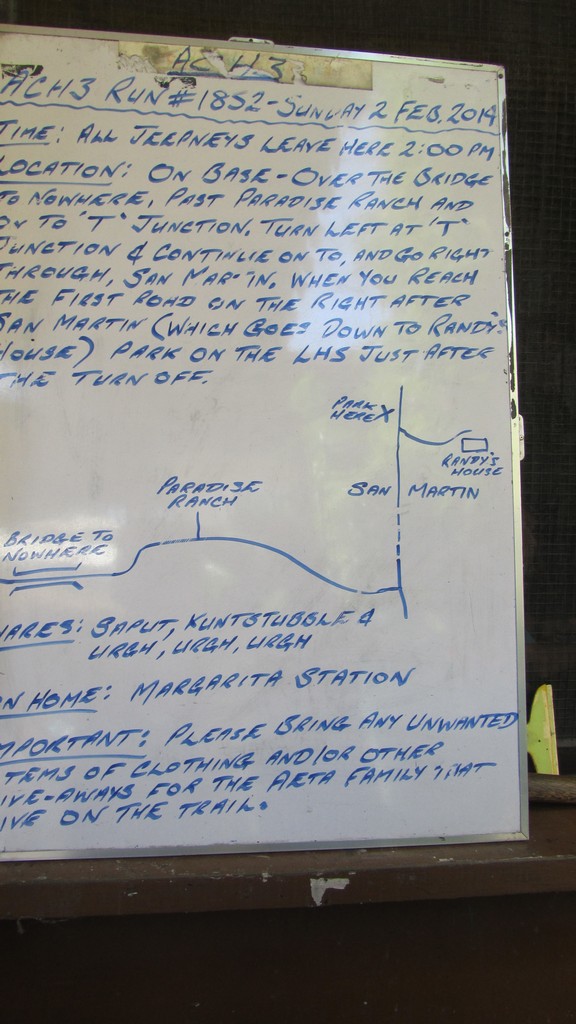 ACH3
ACH3 RUN #1852 - SUNDAY 2 FEB. 2014
TIME: ALL JEEPNEYS LEAVE HERE 2:00 PM
LOCATION: ON BASE - OVER THE BRIDGE
TO NOWHERE, PAST PARADISE RANCH AND
ON TO 'T' JUNCTION. TURN LEFT AT 'T'
JUNCTION & CONTINUE ON TO, AND GO RIGHT
THROUGH, SAN MARTIN. WHEN YOU REACH
THE FIRST ROAD ON THE RIGHT AFTER
SAN MARTIN (WHICH GOES DOWN TO RANDY'S
HOUSE) PARK ON THE LHS JUST AFTER
THE TURN OFF.
PARK
HERE X
RANDY'S
HOUSE
SAN MARTIN
PARADISE
RANCH
BRIDGE TO
NOWHERE
HARES: SAPUT, KUNTSTUBBLE &
URGH, URGH, URGH
ON HOME: MARGARITA STATION
IMPORTANT: PLEASE BRING ANY UNWANTED
ITEMS OF CLOTHING AND/OR OTHER
GIVE-AWAYS FOR THE AETA FAMILY THAT
LIVE ON THE TRAIL.